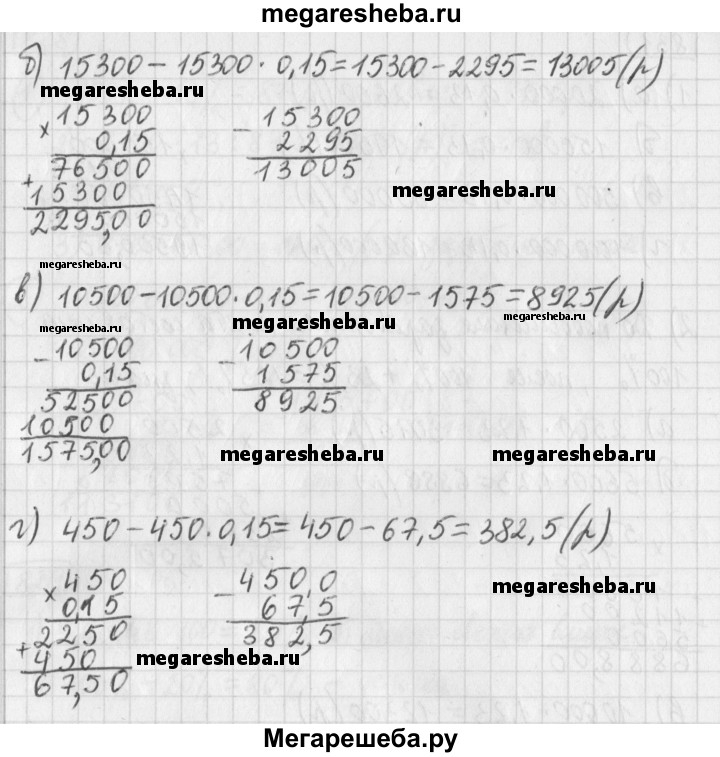 megaresheba.ru
б) 15300 − 15300 · 0,15 = 15300 − 2295 = 13005 (р)
megaresheba.ru
× 15300
0,15
76500
+ 15300
2295,00
− 15300
2295
13005
megaresheba.ru
megaresheba.ru
в) 10500 − 10500 · 0,15 = 10500 − 1575 = 8925 (р)
megaresheba.ru
megaresheba.ru
megaresheba.ru
− 10500
0,15
52500
10500
1575,00
− 10500
1575
8925
megaresheba.ru
megaresheba.ru
г) 450 − 450 · 0,15 = 450 − 67,5 = 382,5 (р)
× 450
0,15
2250
+ 450
67,50
− 450,0
67,5
382,5
megaresheba.ru
megaresheba.ru
Мегарешеба.ру